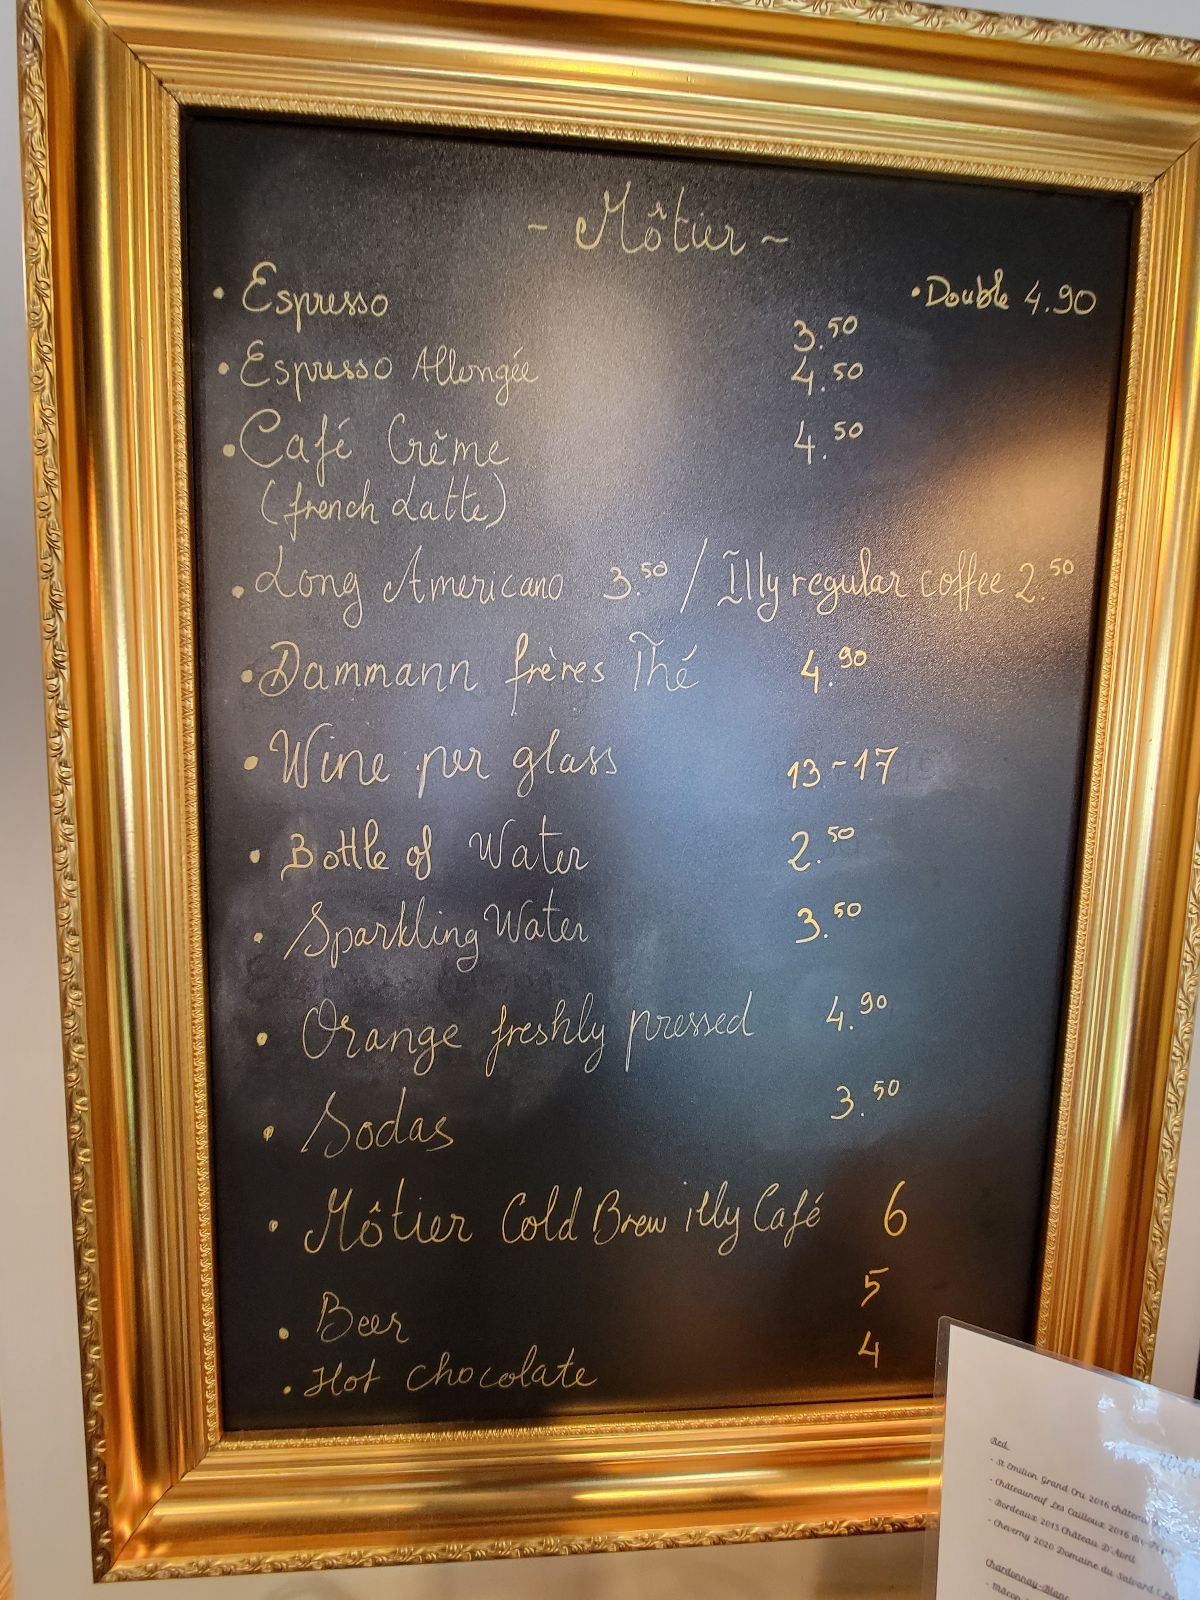 - Môtier ~
• Espresso 3.50 • Double 4.90
• Espresso Allongée 4.50
• Café Crême 4.50
(french Latte)
• Long Americano 3.50 / Illy regular coffee 2.50
• Dammann frères Thé 4.90
• Wine per glass 13-17
• Bottle of Water 2.50
• Sparkling Water 3.50
• Orange freshly pressed 4.90
• Sodas 3.50
• Môtier Cold Brew illy Café 6
• Beer 5
• Hot chocolate 4
Red
- St Emilion Grand Cru 2016
- Châteauneuf Les Cailloux 2016
- Bordeaux 2015 Château D'Avril
- Cheverny 2020 Domaine du Salvard
Chardonnay-Blanc
- Mâcon